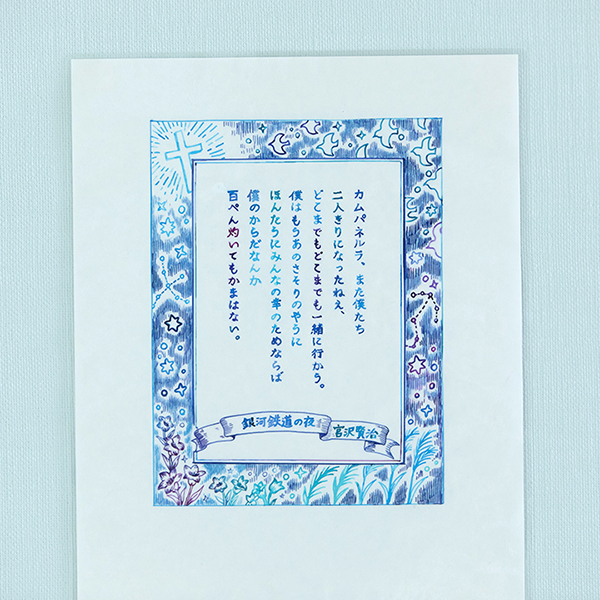 カムパネルラ、また僕たち
二人きりになったねえ、
どこまでもどこまでも一緒に行かう。
僕はもうあのさそりのやうに
ほんたうにみんなの幸のためならば
僕のからだなんか
百ぺん灼いてもかまはない。
銀河鉄道の夜
宮沢賢治